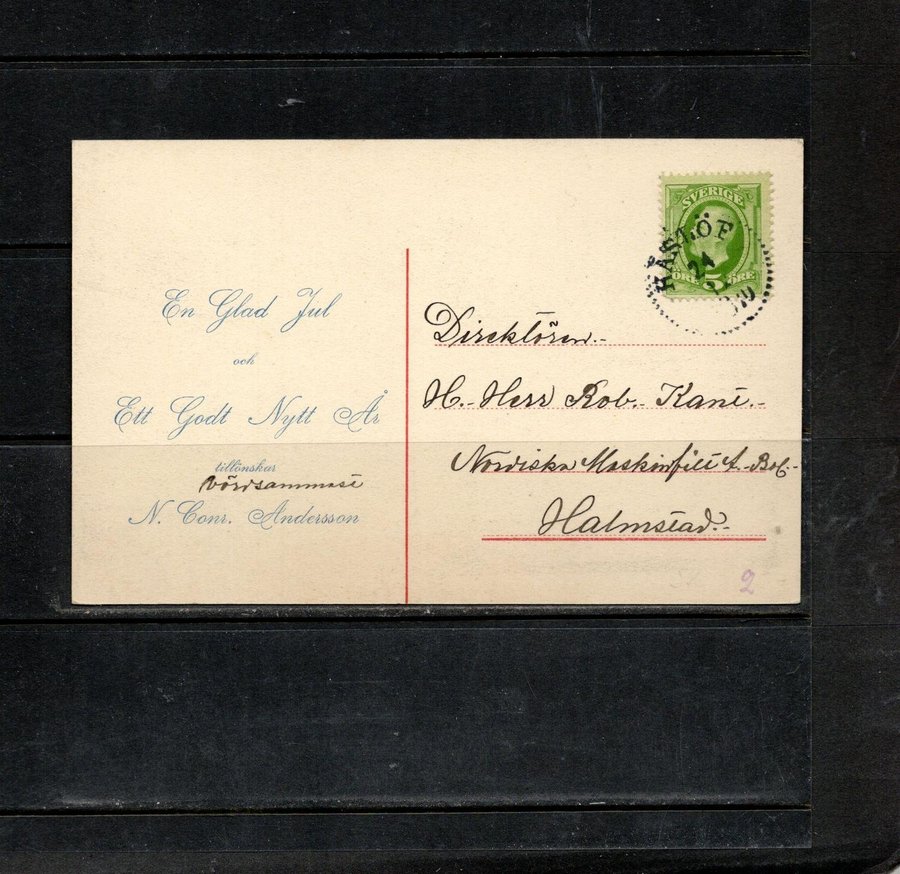 En Glad Jul
och
Ett Godt Nytt År
tillönskar
vördsammast
N. Conr. Andersson
SVERIGE
5
ÖRE ÖRE
24
Direktören.-
H.- Herr Rob.- Kane.-
Nordiska Maskinfilt A.-Bol.-
Halmstad.-
2